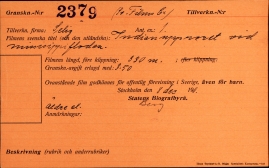 Granskn.-N:r 2379 Tillverkn.-N:r
Tillverkn. firma: Selig Ant. ex.: 1.
Filmens svenska titel (och den utländska):
Indianuppror vid
Mississippifloden.
Filmens längd, före klippning: 330 m. efter klippning:
Gransknings-avgift erlagd med: 3.50
Ovanstående film godkännes för offentlig förevisning i Sverige, även för barn.
Stockholm den 8 dec. 191
Statens Biografbyrå.
Anmärkningar:
Beskrivning (rubrik och underrubriker)